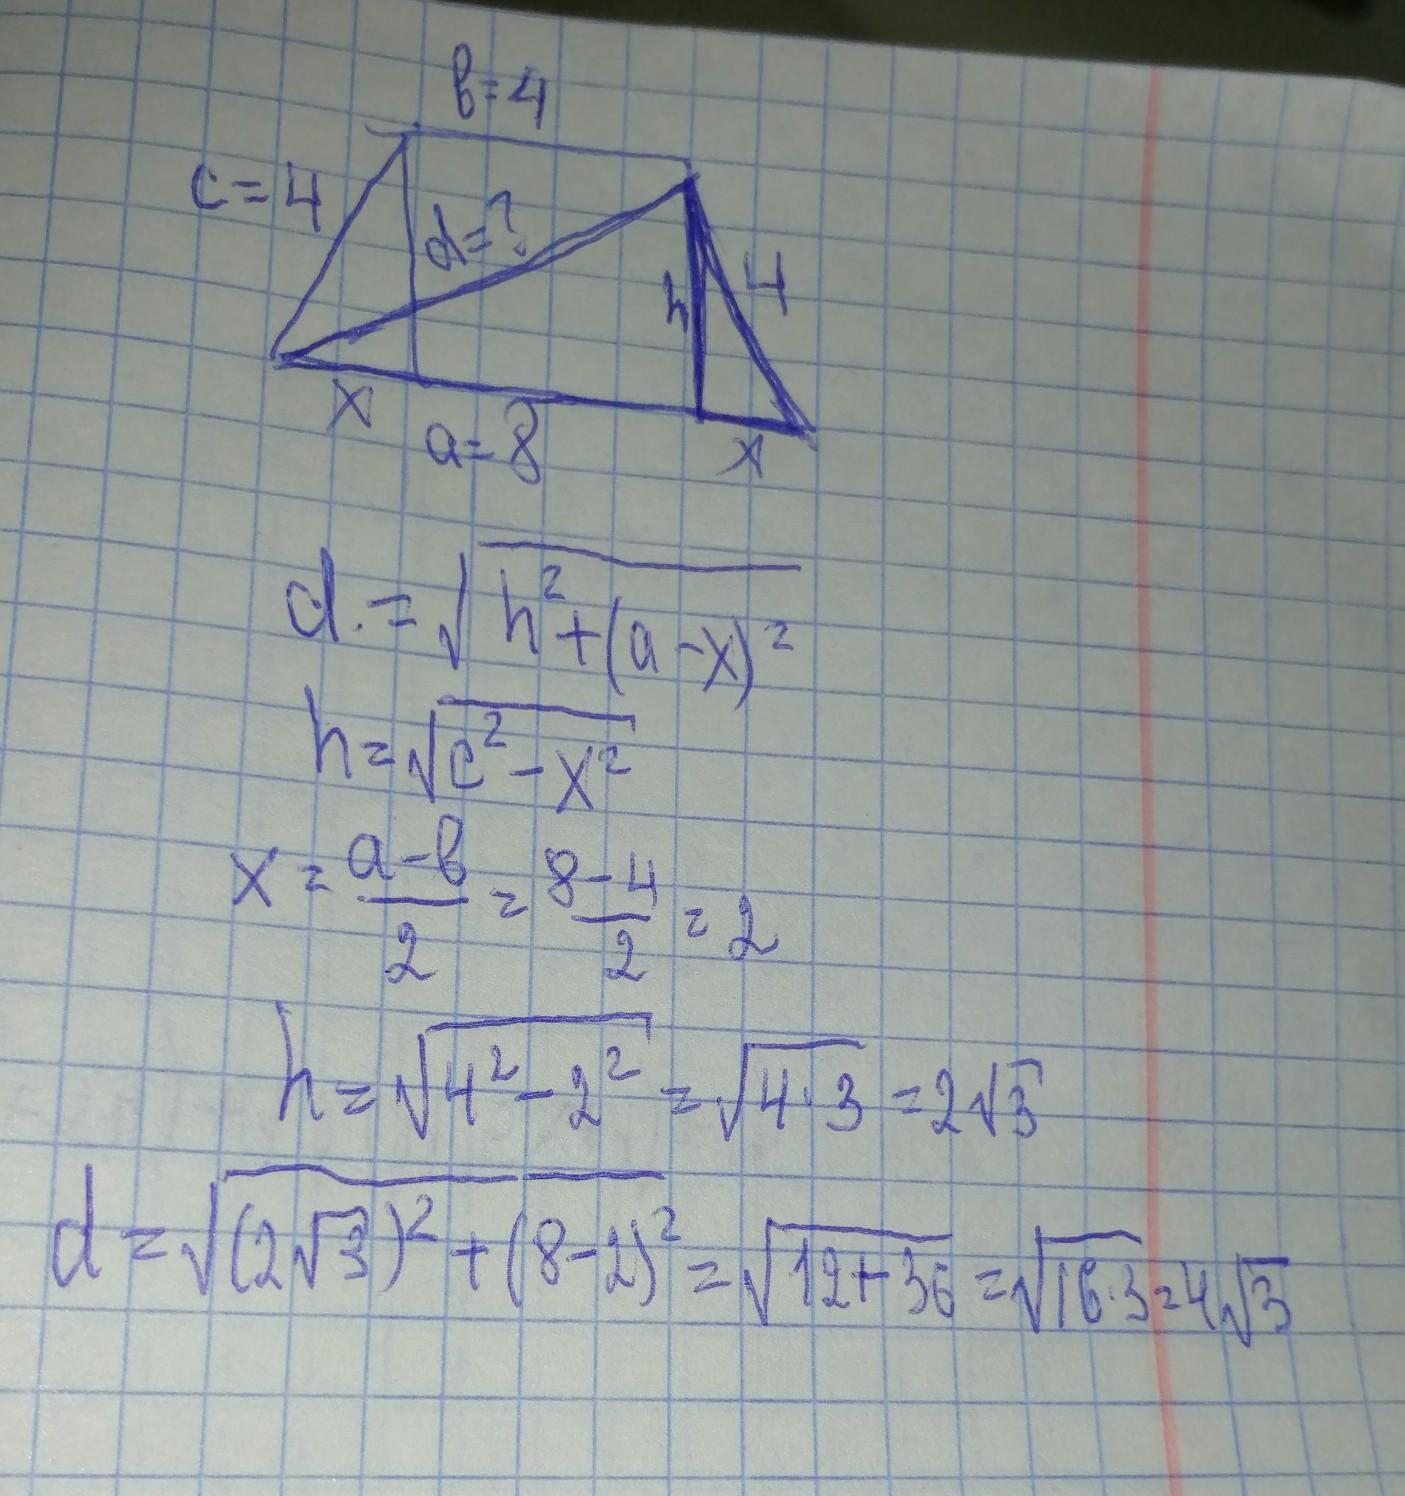 в=4
c=4
d=?
h
4
x
a=8
x
d.=√h²+(a-x)²
h=√c²-x²
x=a-в/2=8-4/2=2
h=√4²-2²=√4·3=2√3
d=√(2√3)²+(8-2)²=√12+36=√16·3=4√3